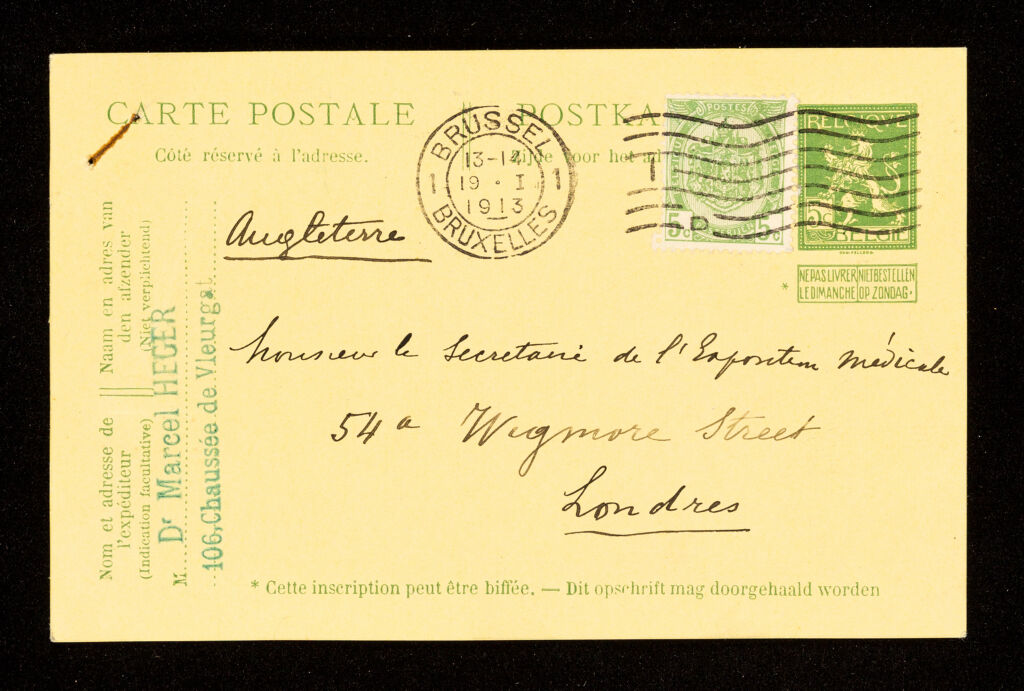 CARTE POSTALE
POSTKA
Côté réservé à l'adresse.
Zijde voor het ad
BRUSSEL
13-14
1 19·I 1
1913
BRUXELLES
POSTES
5c 5c
BELGIQUE
5c
BELGIE
* NE PAS LIVRER NIET BESTELLEN
LE DIMANCHE OP ZONDAG.
Angleterre
Monsieur le Secretaire de l'Exposition médicale
54a Wigmore Street
Londres
Nom et adresse de
l'expéditeur
(Indication facultative)
Naam en adres van
den afzender
(Niet verplichtend)
M. Dr Marcel HEGER
106, Chaussée de Vleurgat
* Cette inscription peut être biffée. — Dit opschrift mag doorgehaald worden